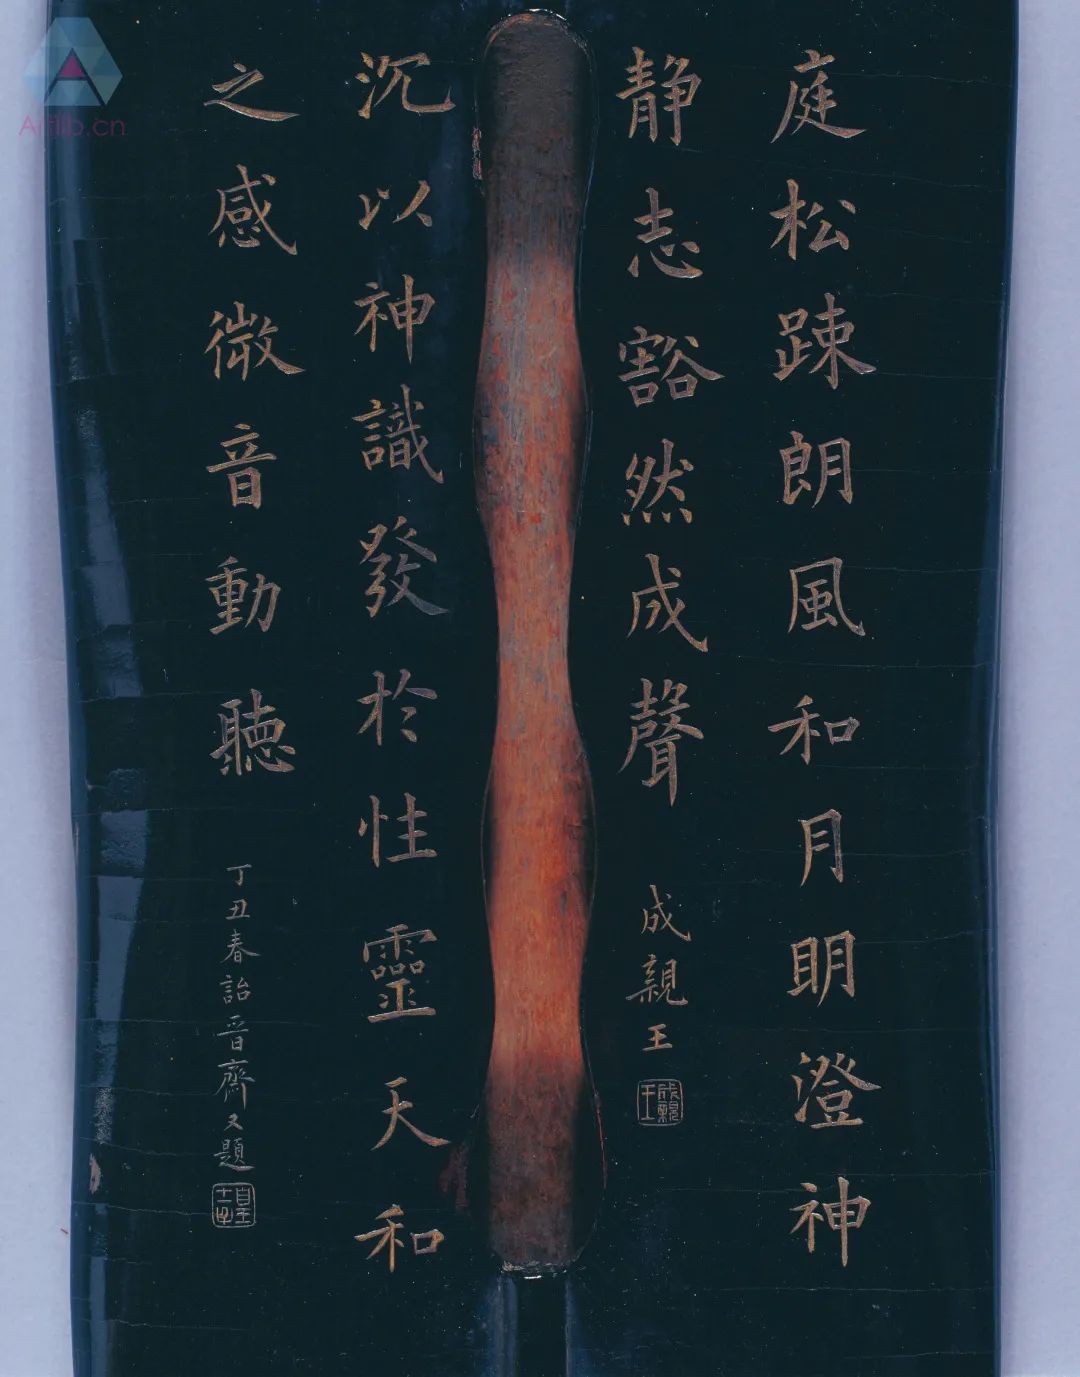 庭松踈朗風和月明澄神
静志豁然成聲
成親王
成親王
沉以神識發於性靈天和
之感微音動聽
丁丑春詒晉齋又題
皇十一子
Artlib.cn